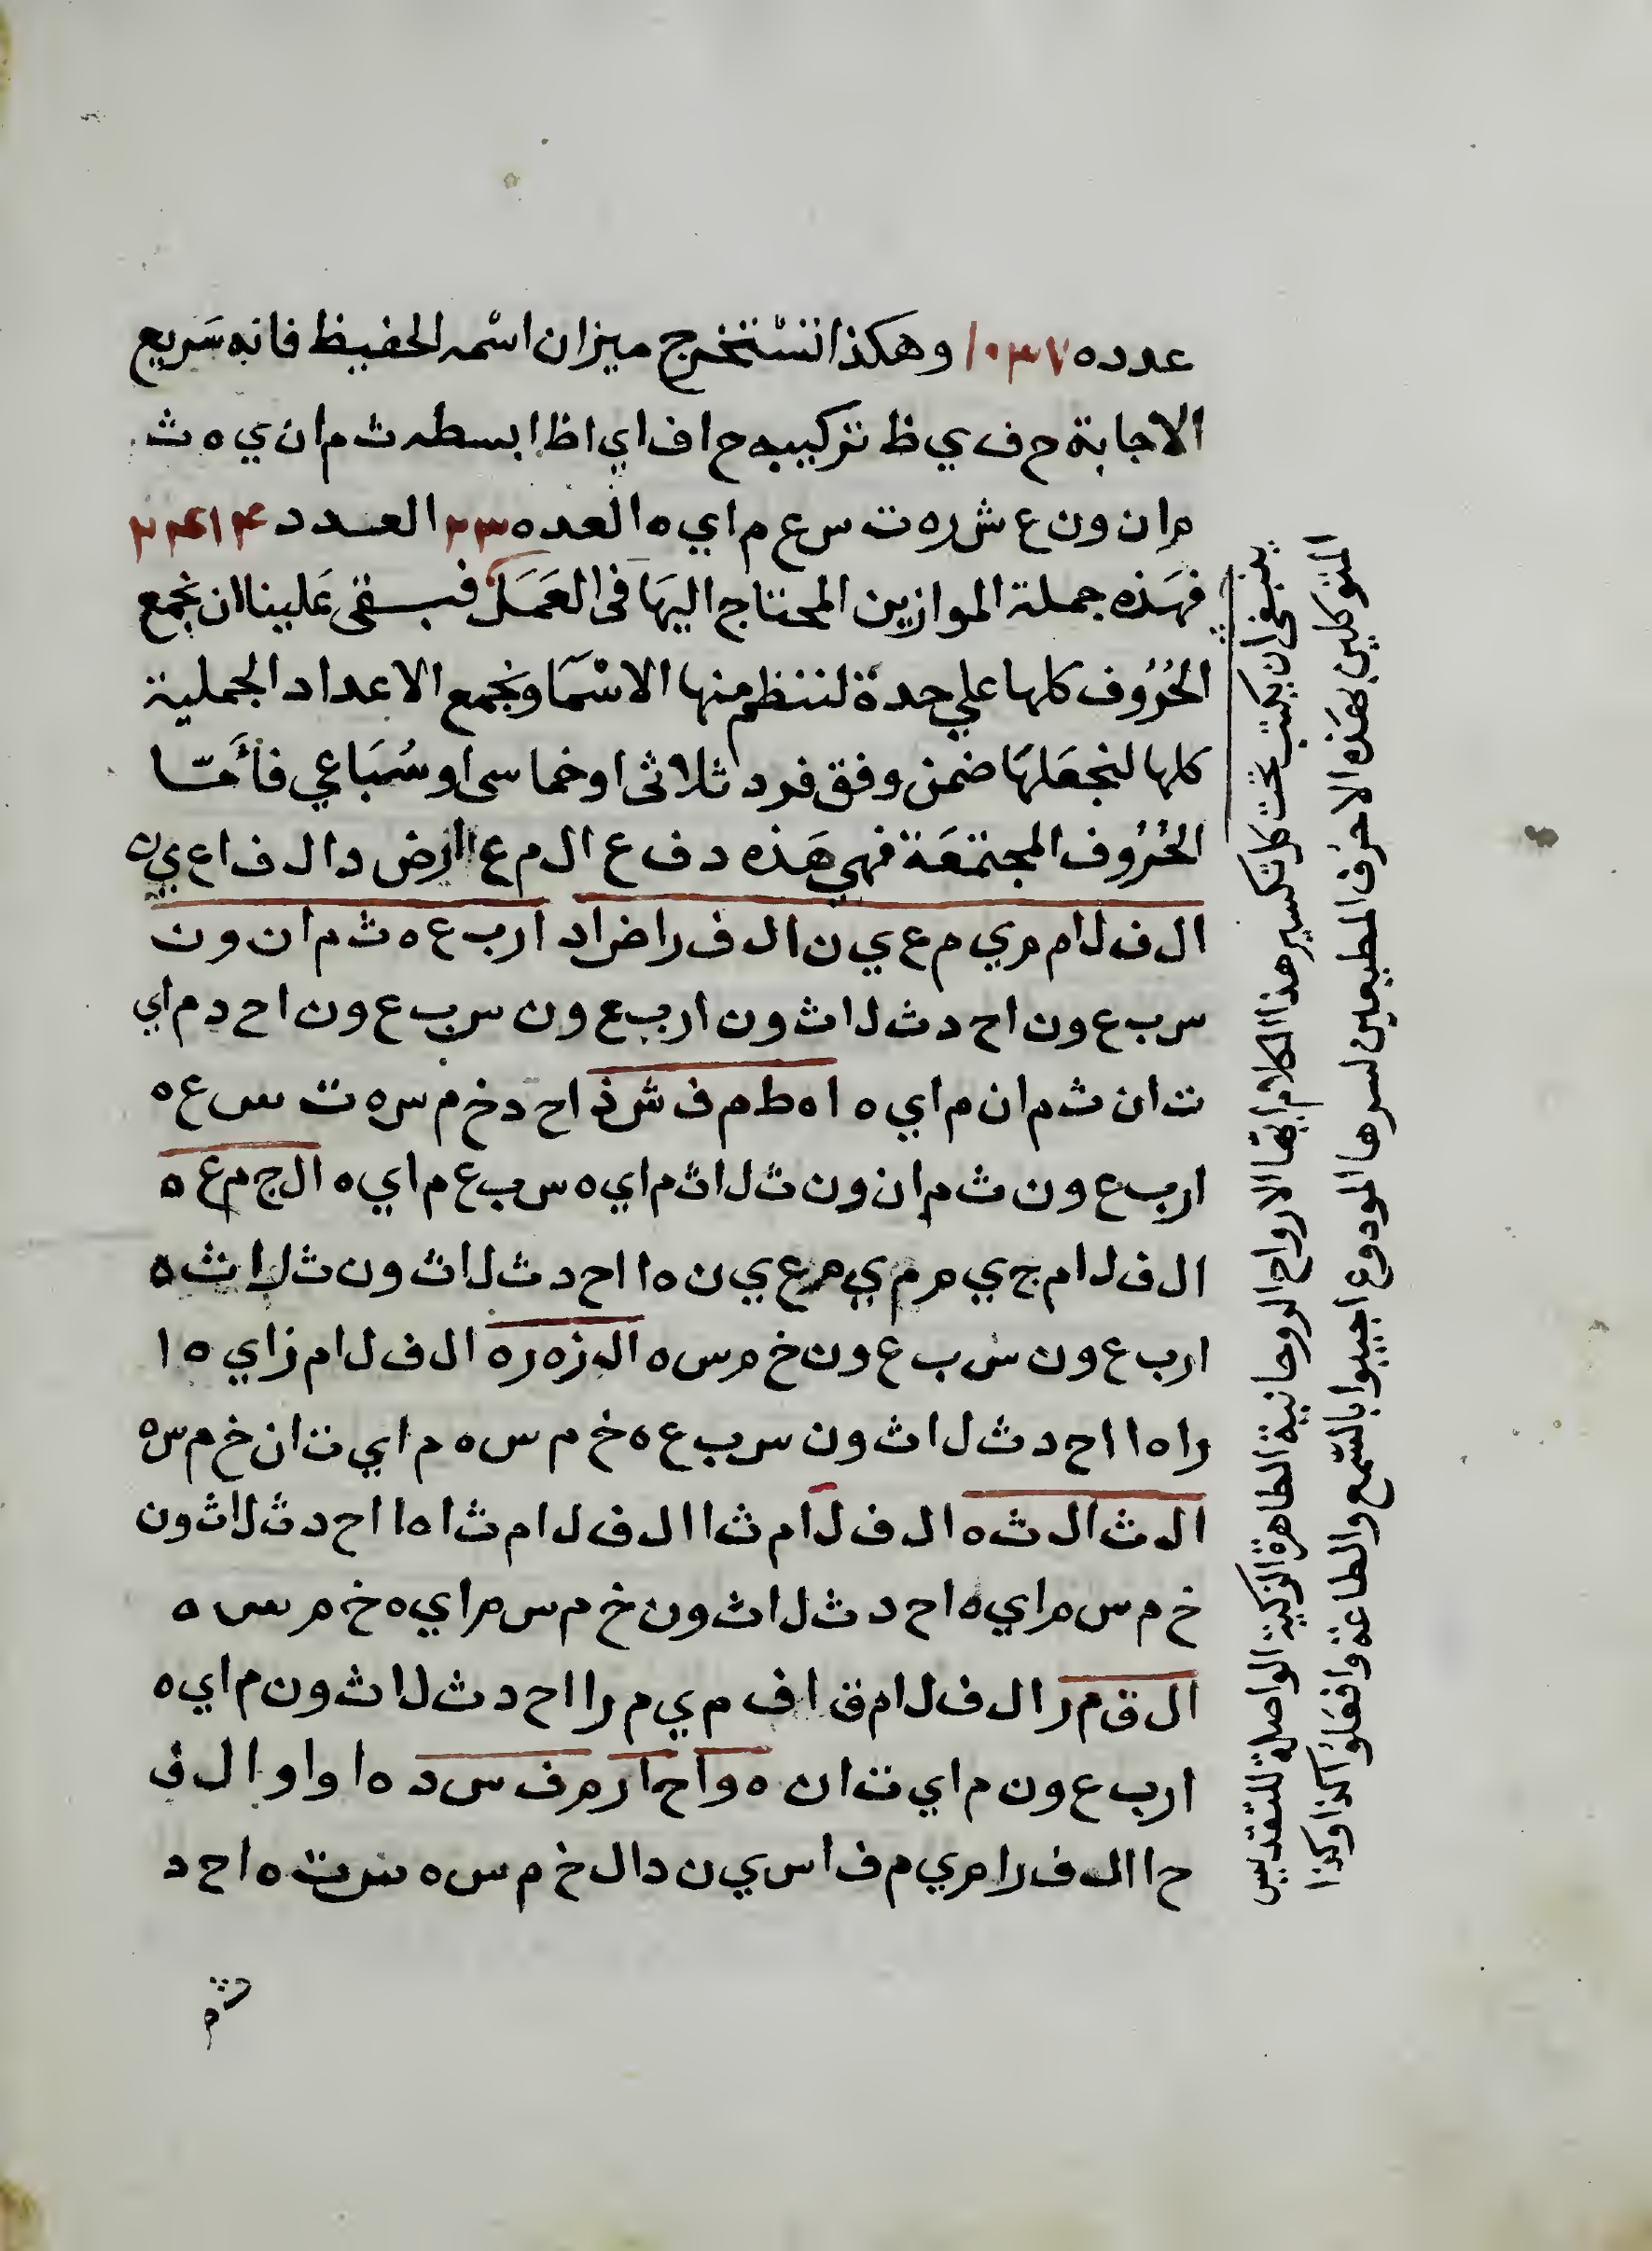 عدده ١٠٣٧ وهكذا نستخرج ميزان اسمه الحفيظ فانه سَريع
الاجابة ح ف ي ظ تركيبه ح ا ف ا ي ا ظ ا بسطه ث م ا ن ي ه ث
م ا ن و ن ع ش ر ه ت س ع م ا ي ه العده ٢٣ العدد
فهَذه جملة الموازين المحتاج اليهَا فى العَمَل فبقى عَلينا ان نجمع
الحُرُوف كلها علي حدة لننظم منها الاسْمَا ونجمع الاعداد الجملية
كلها لنجعَلهَا ضمن وفق فرد ثلاثى او خماسى او سُبَاعي فأمّا
الحُرُوف المجتمَعَة فهي هَذه د ف ع ا ل م ع ا ر ض د ا ل ف ا ع ي ن
ا ل ف ل ا م م ي م ع ي ن ا ل ف ر ا ض ا د ا ر ب ع ه ث م ا ن و ن
س ب ع و ن ا ح د ث ل ا ث و ن ا ر ب ع و ن س ب ع و ن ا ح د م ا ي
ت ا ن ث م ا ن م ا ي ه ا ه ط م ف ش ذ ا ح د خ م س ه ت س ع ه
ا ر ب ع و ن ث م ا ن و ن ث ل ا ث م ا ي ه س ب ع م ا ي ه ا ل ج م ع ه
ا ل ف ل ا م ج ي م م ي م ع ي ن ه ا ا ح د ث ل ا ث و ن ث ل ا ث ه
ا ر ب ع و ن س ب ع و ن خ م س ه ا ل ز ه ر ه ا ل ف ل ا م ز ا ي ه ا
ر ا ه ا ا ح د ث ل ا ث و ن س ب ع ه خ م س ه م ا ي ت ا ن خ م س ه
ا ل ث ا ل ث ه ا ل ف ل ا م ث ا ا ل ف ل ا م ث ا ه ا ا ح د ث ل ا ث و ن
خ م س م ا ي ه ا ح د ث ل ا ث و ن خ م س م ا ي ه خ م س ه
ا ل ق م ر ا ل ف ل ا م ق ا ف م ي م ر ا ا ح د ث ل ا ث و ن م ا ي ه
ا ر ب ع و ن م ا ي ت ا ن ه و ا ح ا ر م ف س د ه ا و ا و ا ل ف
ح ا ا ل ف ر ا م ي م ف ا س ي ن د ا ل خ م س ه س ت ه ا ح د
ينبغى ان يكتب تحت كل تكسير هذا الكلام ايها الارواح الروحانية الطاهرة الزكية الواصلة للتقديس
المتوكلين بهَذه الاحرُف المطيعين لسرها المودوع اجيبوا بالسّمع والطاعة وافعَلوُا كذا وكذا